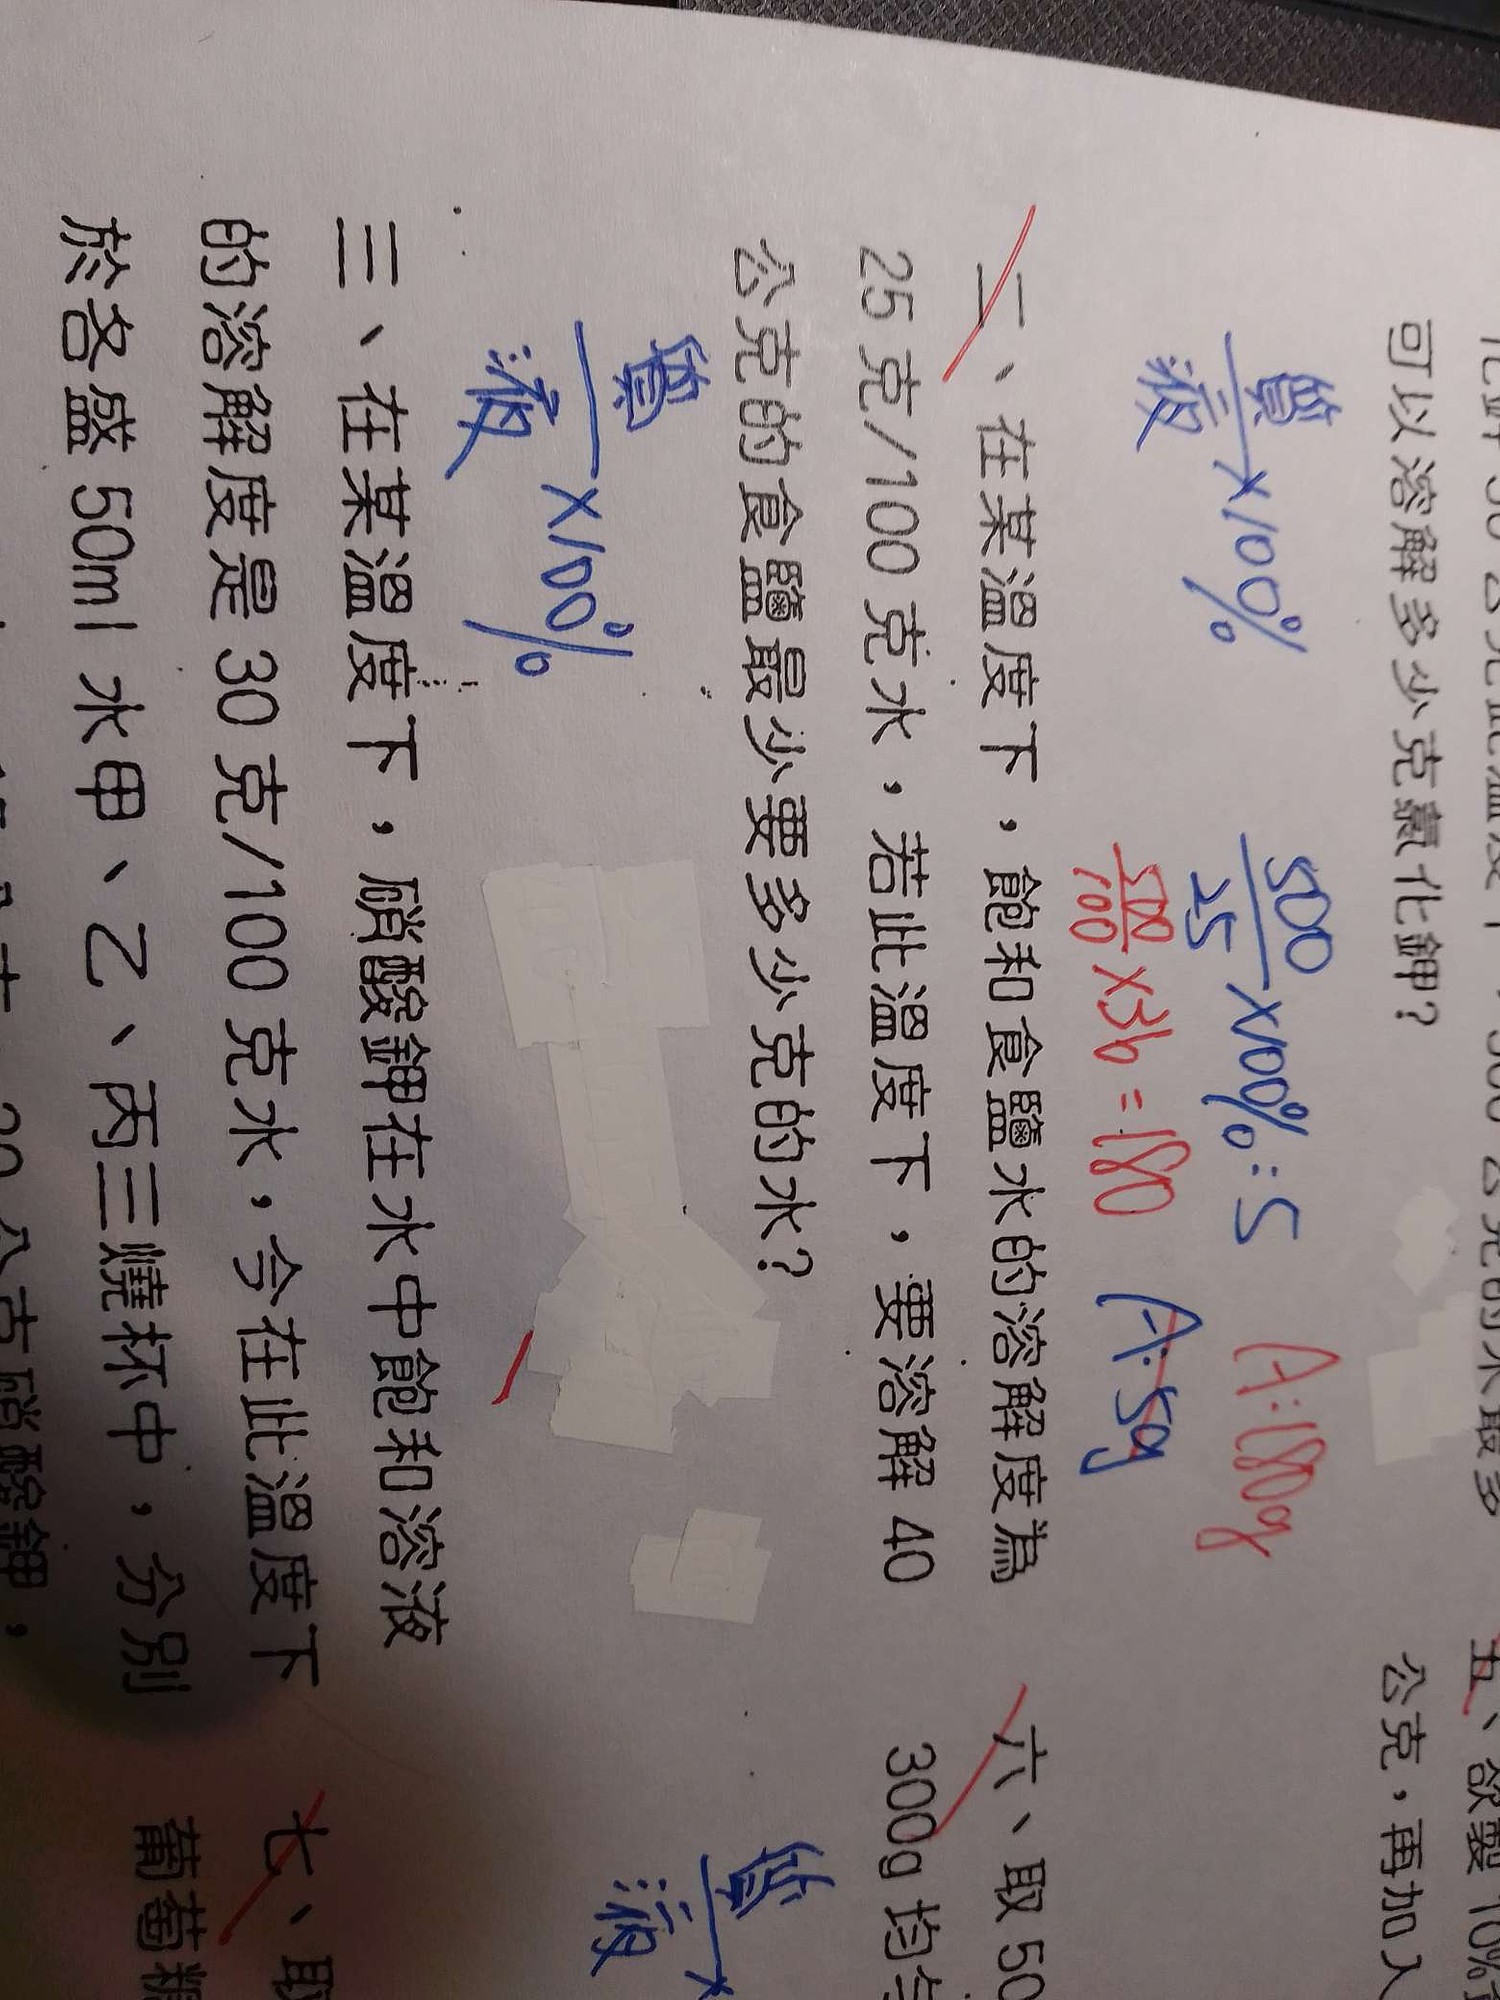 可以溶解多少克氯化鉀?
質/液×100%
500/25×100%=5
A:180g
500/100×36=180
A:5g
二、在某溫度下，飽和食鹽水的溶解度為
25克/100克水，若此溫度下，要溶解40
公克的食鹽最少要多少克的水?
質/液×100%
三、在某溫度下，硝酸鉀在水中飽和溶液
的溶解度是30克/100克水，今在此溫度下
於各盛50ml水甲、乙、丙三燒杯中，分別
公克硝酸鉀，
五、欲製10%
公克，再加入
六、取50
300g均勻
質/液×
七、取
葡萄糖